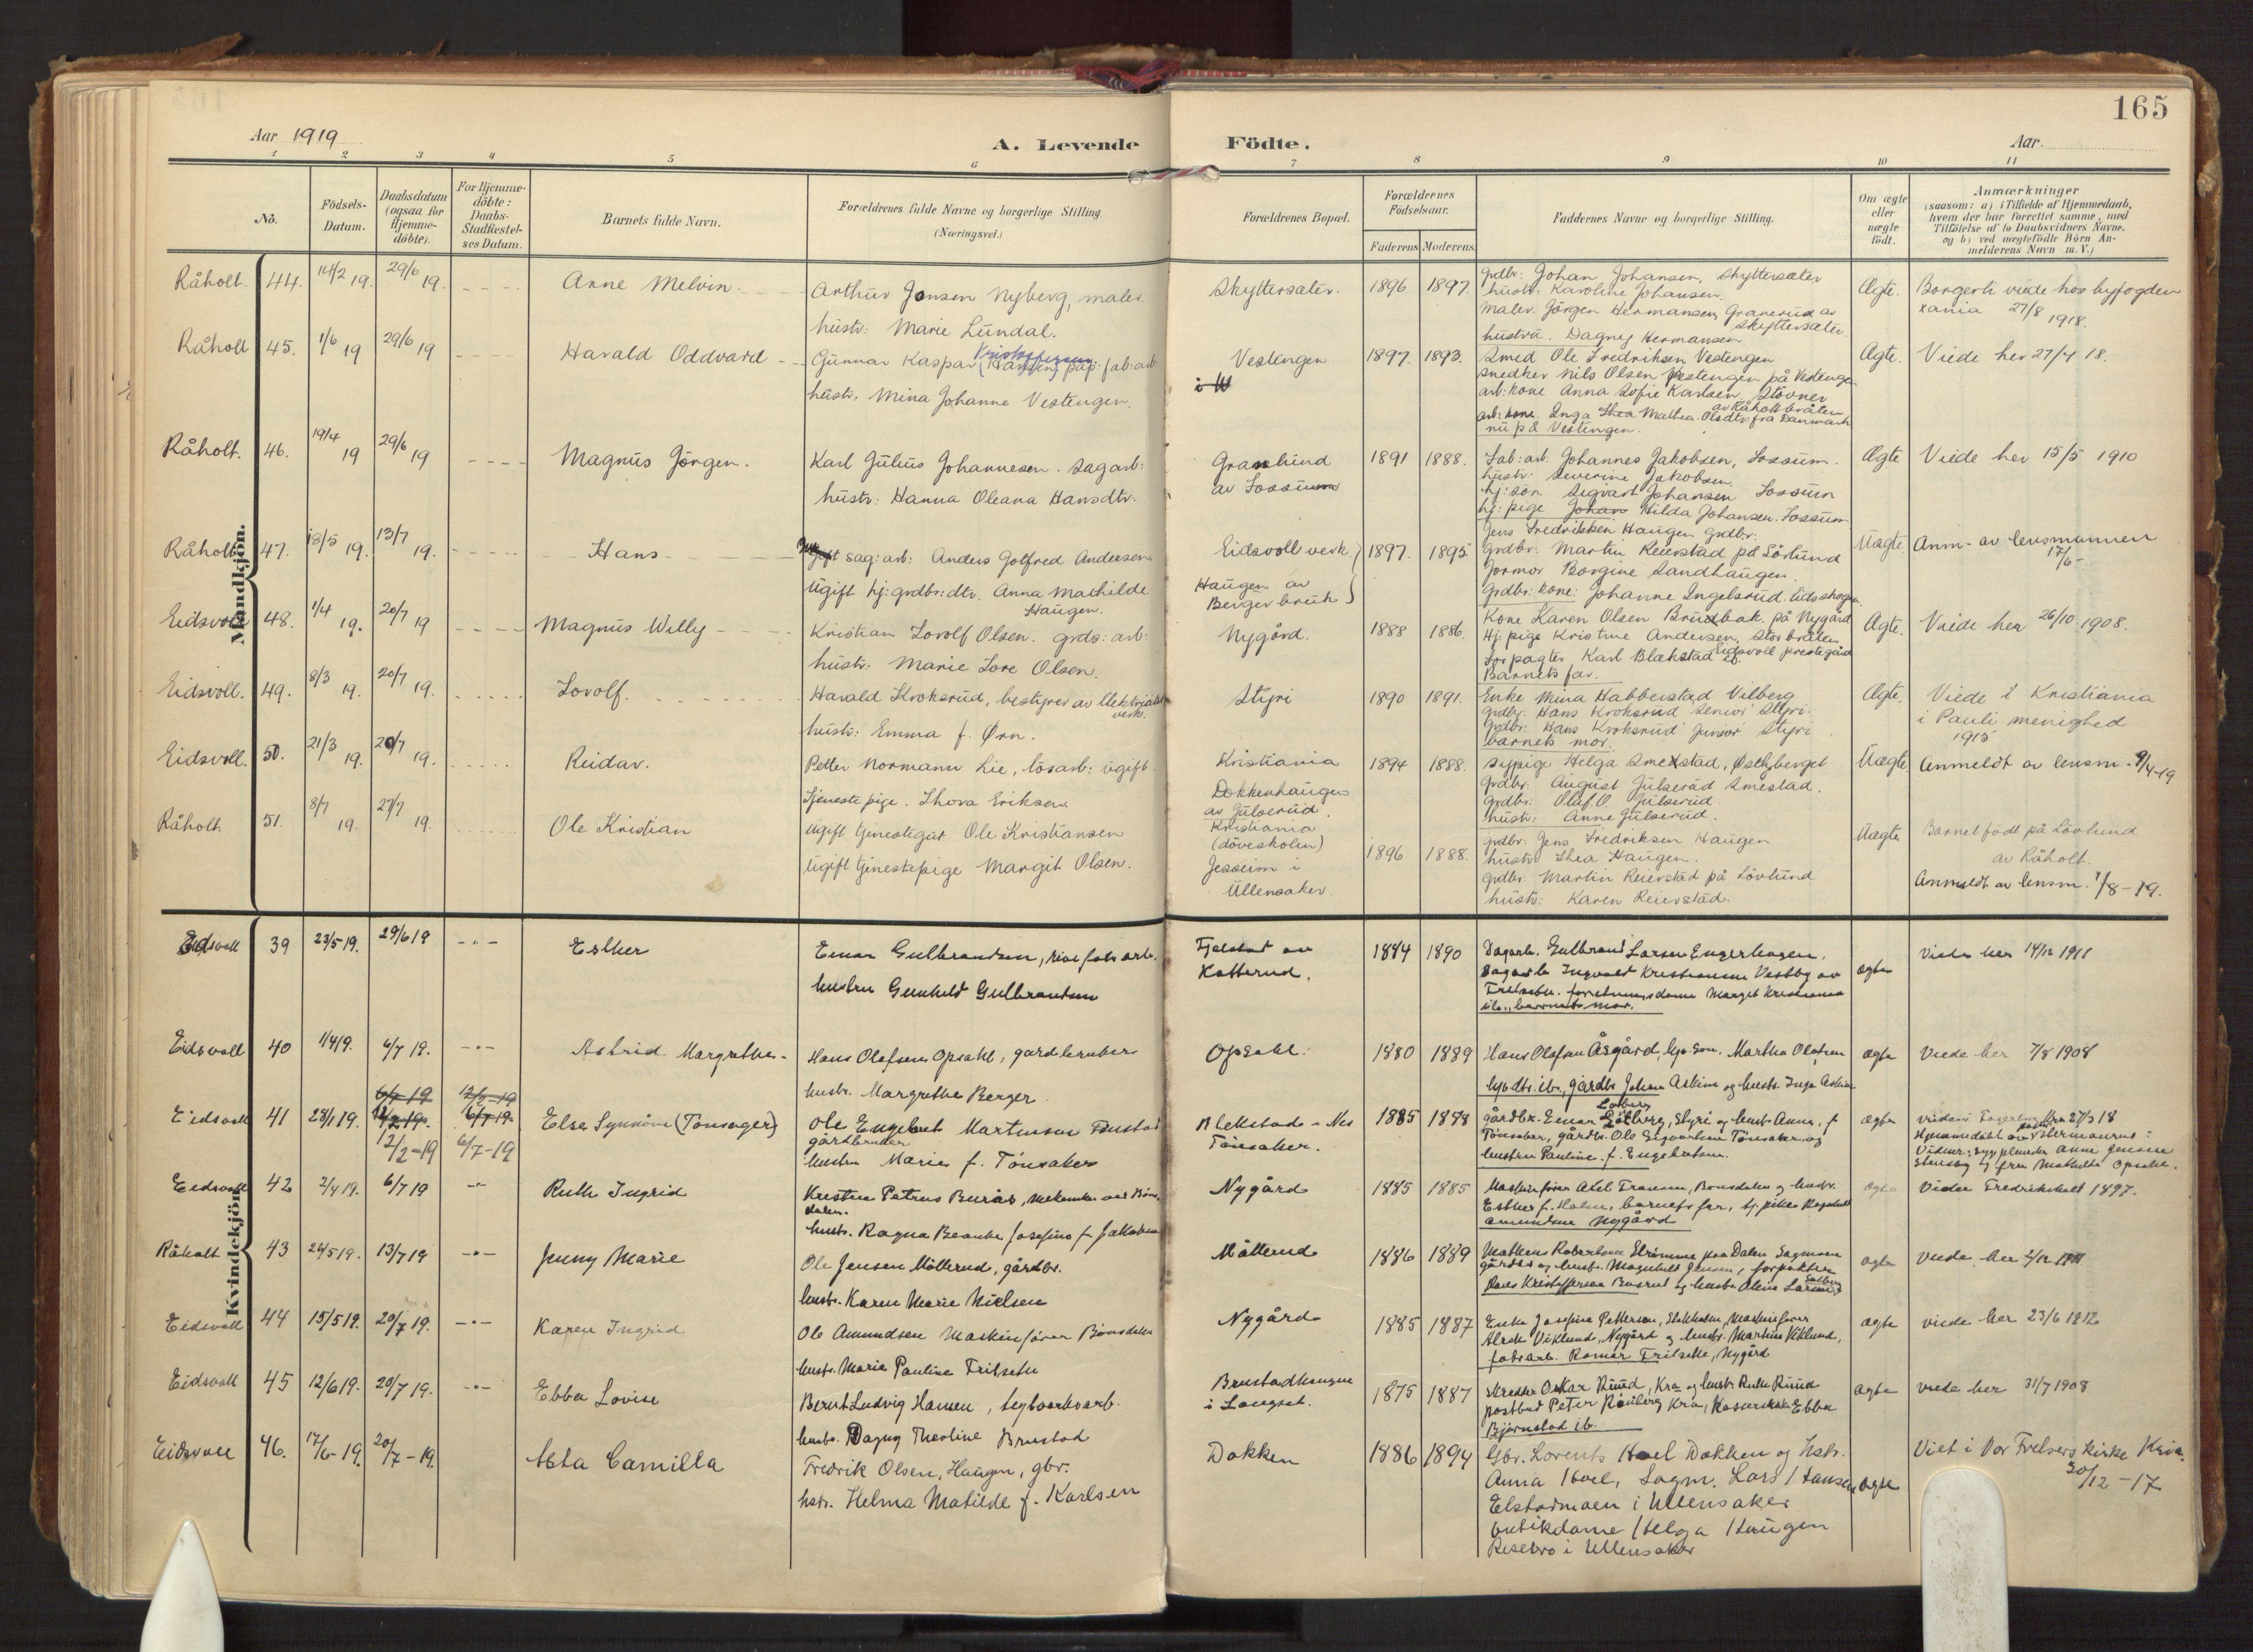 165
Aar 1919
A. Levende Födte.
Aar
1 2 3 4 5 6 7 8 9 10 11
No.
Födsels-Datum.
Daabsdatum (ogsaa for Hjemme-döbte).
For Hjemme-döbte: Daabs-Stadfæstel-ses Datum.
Barnets fulde Navn.
Forældrenes fulde Navne og borgerlige Stilling.
(Næringsvei.)
Forældrenes Bopæl.
Forældrenes Födselsaar.
Faderens Moderens
Faddernes Navne og borgerlige Stilling.
Om ægte eller uægte født.
Anmærkninger
(saasom: a) i Tilfælde af Hjemmedaab,
hvem der har forrettet samme, med
Tilföielse af to Daabsvidners Navne.
og b) ved uægtefödte Börn An-
melderens Navn m. V.)
Mandkjön.
Råholt. 44. 14/2 19. 29/6 19. Arne Melvin.
Arthur Jensen Nyberg, maler.
hustr: Marie Lundal.
Skyttersæter. 1896 1897.
Grdbr: Johan Johansen, Skyttersæter
hustr: Karoline Johansen.
Maler. Jörgen Hermansen, Granerud av Skyttersæter
hustru. Dagny Hermansen
Ægte. Borgerli viede hos byfogden
xania 27/8 1918.
Råholt 45. 1/6 19 29/6 19 Harald Oddvard
Kristoffersen
Gunnar Kaspar (Hansen) pap: fab: arb:
hustr. Mina Johanne Vestengen.
Vestengen 1897. 1893.
Smed Ole Fredriksen Vestengen
snedker Nils Olsen Vestengen på Vestengen
arb: kone Anna Sofie Karlsen, Stövner
av Råholtbråten
arb: kone. Inga Thea Mathea Olsdtr. fra Danmark
nu på Vestengen.
Ægte. Viede her 27/4 18.
Råholt. 46. 19/4 19 29/6 19 Magnus Jörgen.
Karl Julius Johannesen. sagarb:
hustr: Hanna Oleana Hansdtr.
Granlund
av Sossum
1891 1888.
Fab: arb: Johannes Jakobsen, Sossum.
hustr: Severine Jakobsen.
hj: sön. Sigvart Johansen Sossum
hj: pige Hilda Johansen. Sossum
Ægte Viede her 15/5 1910
Råholt 47. 18/5 19. 13/7 19. Hans
sag: arb: Anders Gotfred Andersen
Ugift hj: grdbr: dtr. Anna Mathilde
Haugen.
Eidsvoll verk
Haugen av
Berger bruk
1897. 1895
Jens Fredriksen Haugen grdbr:
Grdbr: Martin Reierstad på Lövlund
Jormor Borgine Sandhaugen.
Grdbr: kone: Johanne Ingelsrud.
Uægte Anm. av lensmannen
17/6-
Eidsvoll 48. 1/4 19. 20/7 19 Magnus Willy
Kristian Lorolf Olsen. grds: arb:
hustr: Marie Lore Olsen.
Nygård. 1888 1886.
Kone Karen Olsen Brudbak, på Nygård
Hj: pige Kristine Andersen, Storbråten
Forpagter Karl Blækstad Eidsvoll prestegård
Barnets far.
Ægte. Viede her 26/10 1908.
Eidsvoll. 49. 8/3 19. 20/7 19. Lorolf.
Harald Kroksrud, bestyrer av elektrisitets
verk.
hustr: Emma f. Ørn.
Styri 1890 1891.
Enke Mina Habberstad Vilberg
grdbr: Hans Kroksrud senior Styri
grdbr: Hans Kroksrud junior Styri
barnets mor.
Ægte. Viede i Kristiania
i Pauli menighed
1915
Eidsvoll. 50. 21/3 19. 20/7 19. Reidar.
Petter Normann Lie, lösarb: ugift.
Tjeneste pige. Thora Eriksen.
Kristiania
Dokkenhaugen
av Julserud.
1894 1888.
Sypige Helga Smestad, Østlyberget
Grdbr: August Julserud Smestad.
grdbr: Olaf O. Julserud.
hustr: Anne Julserud.
Uægte. Anmeldt av lensm. 9/4-19
Råholt. 51. 8/7 19. 27/7 19. Ole Kristian
Ugift tjenestegut Ole Kristiansen
Ugift tjenestepige Margit Olsen.
Kristiania
(döveskolen)
Jesseim i
Ullensaker
1896 1888.
grdbr: Jens Fredriksen Haugen
hustr Thea Haugen.
Grdbr: Martin Reierstad på Lövlund
hustr: Karen Reierstad.
Uægte Barnet født på Lövlund
av Råholt.
Anmeldt av lensm. 1/8-19.
Kvindekjön.
Eidsvoll 39 23/5 19. 29/6 19 Esther
Einar Gulbrandsen, arb.
hustru Gunhild Gulbrandsen
Fjelstad av
Katterud.
1884 1890
Sagarb. Gulbrand Larsen Engerhagen.
Sagarb. Ingvald Kristiansen Vestby av
Fritsetu. forretningsdame Margit Kristiansen
ib., barnets mor.
ægte Viede her 14/12 1911
Eidsvoll 40 1/4 19. 6/7 19. Astrid Margrethe.
Hans Olafsen Opsahl, gardbruker
hustr. Margrethe Berger
Opsahl. 1880 1889
Hans Olafsen Åsgård, hj. søn, Martha Olafsen
hj. dtr. ib., gårdbr Johan Askim og hustr. Inga Askim
ægte Viede her 7/8 1908
Eidsvoll 41 28/1 19. 12/2-19 6/7-19 Else Synnöve (Tönsager)
Ole Engebret Martinsen
gårdbruker
hustru Marie f. Tönsaker
Blekstad i Nes
Tönsaker.
1885 1898
gårdbr. Einar Løberg, Styri og hustr. Anna, f.
Tönsaker, gårdbr. Ole Sigvartsen Tönsaker og
hustru Pauline f. Engebretsen.
ægte
Hjemmedöbt av
Vidner: sygepleierske Anne Jensen
Stensby og fru Mathilde Opsahl.
Eidsvoll 42 2/4 19. 6/7 19 Ruth Ingrid
Kristen Petrus Burås, mekaniker ved Bönsdalen.
hustr. Ragna Beanke Josefine f. Jakobsen
Nygård 1885 1885
Maskinfører Axel Fransen, Bönsdalen og hustr.
Esther f. Holm, barnets far, hj. pike Ragnhild
Amundsen Nygård
ægte Viede Fredrikshald 1897.
Råholt 43 24/5 19. 13/7 19 Jenny Marie
Ole Jensen Möllerud, gårdbr.
hustr. Karen Marie Nielsen
Möllerud 1886 1889
Mathias Robertsen Strömme paa Dalen Sagmoen
gårdbr og hustr. Magnhild Jensen, forpakter
Hans Kristoffersen Busrud og hustr Olina Larsen
ægte Viede her
Eidsvoll 44 15/5 19. 20/7 19. Karen Ingrid
Ole Amundsen Maskinfører Bönsdalen
hustr. Marie Pauline Fritsetu
Nygård 1885 1887
Enke Josefine Pettersen, Stokholm, Maskinfører
Alrek Viklund, Nygård og hustr. Martine Viklund,
fabr.arb. Ramar Fritsetu, Nygård
ægte viede her 23/6 1912
Eidsvoll 45 12/6 19. 20/7 19. Ebba Lovise
Bernt Ludvig Hansen, teglverksarb.
hustr. Dagny Theoline Brustad
Brustadhaugen
i Langset.
1875 1887
Skredder Oskar Ruud, Kra og hustr. Ruth Ruud
postbud Peter Rönberg Kra, Kassererske Ebba
Björnstad ib.
ægte viede her 31/7 1908
Eidsvoll 46. 17/6-19. 20/7-19. Asta Camilla
Fredrik Olsen, Haugen, gbr.
hstr. Helma Matilde f. Karlsen
Dokken 1886 1894
Gbr. Lorents Hoel Dokken og hstr.
Anna Hoel, Sagm. Lars Hansen
Elstadmoen i Ullensaker
butikdame Helga Haugen
Risebro i Ullensaker
ægte Viet i Vor Frelsers kirke Kria.
30/12-17